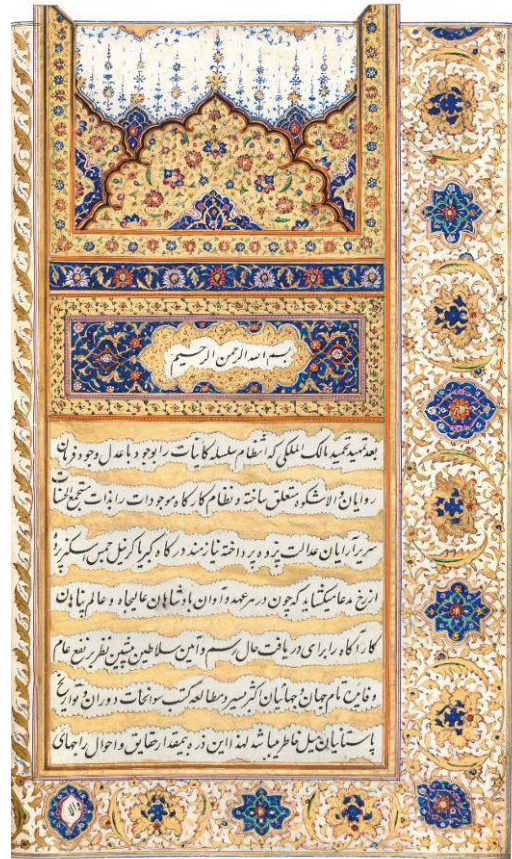 بسم الله الرحمن الرحیم
بعد تمهید تحمید مالک الملکی که انتظام سلسله کاینات را بوجود با عدل وجود فرمان
روایان والاشکوه متعلق ساخته و نظام کارکاه موجودات را بذات مستجمع الحسنات
سریرآرایان عدالت پژوه پرداخته نیازمند درکاه کبریا کرنیل جمیس اسکنر پرده
ازرخ مدعا میکشاید که چون در سرعهد و اوان بادشاهان عالیجاه و عالم پناهان
کارآکاه را برای دریافت حال رسم و آئین سلاطین پیشین نظر بر نفع عام
و فایده تام جهان و جهانیان اکثر بسیر و مطالعه کتب سوانحات دوران و تواریخ
باستانیان میل خاطر میباشد لهذا این ذره بیمقدار حقایق و احوال راجهای